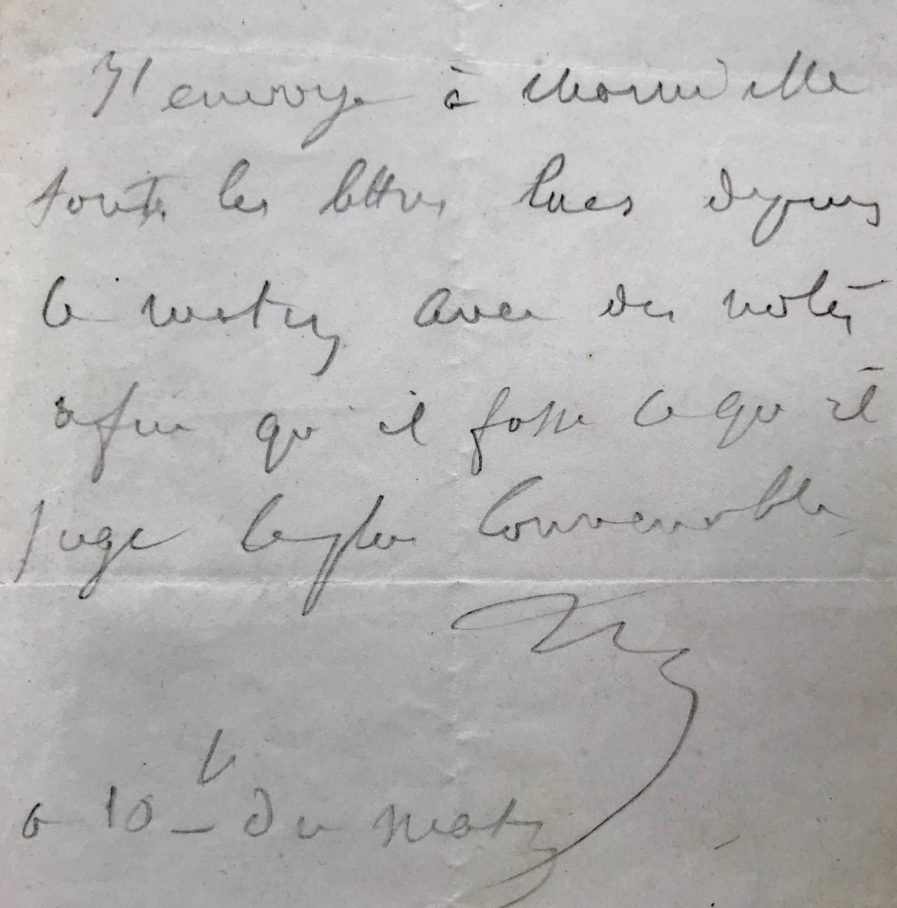 J'envoye à
toutes les lettres lues depuis
le matin avec des notes
afin qu'il fasse ce qu'il
juge le plus convenable
a 10 h du matin